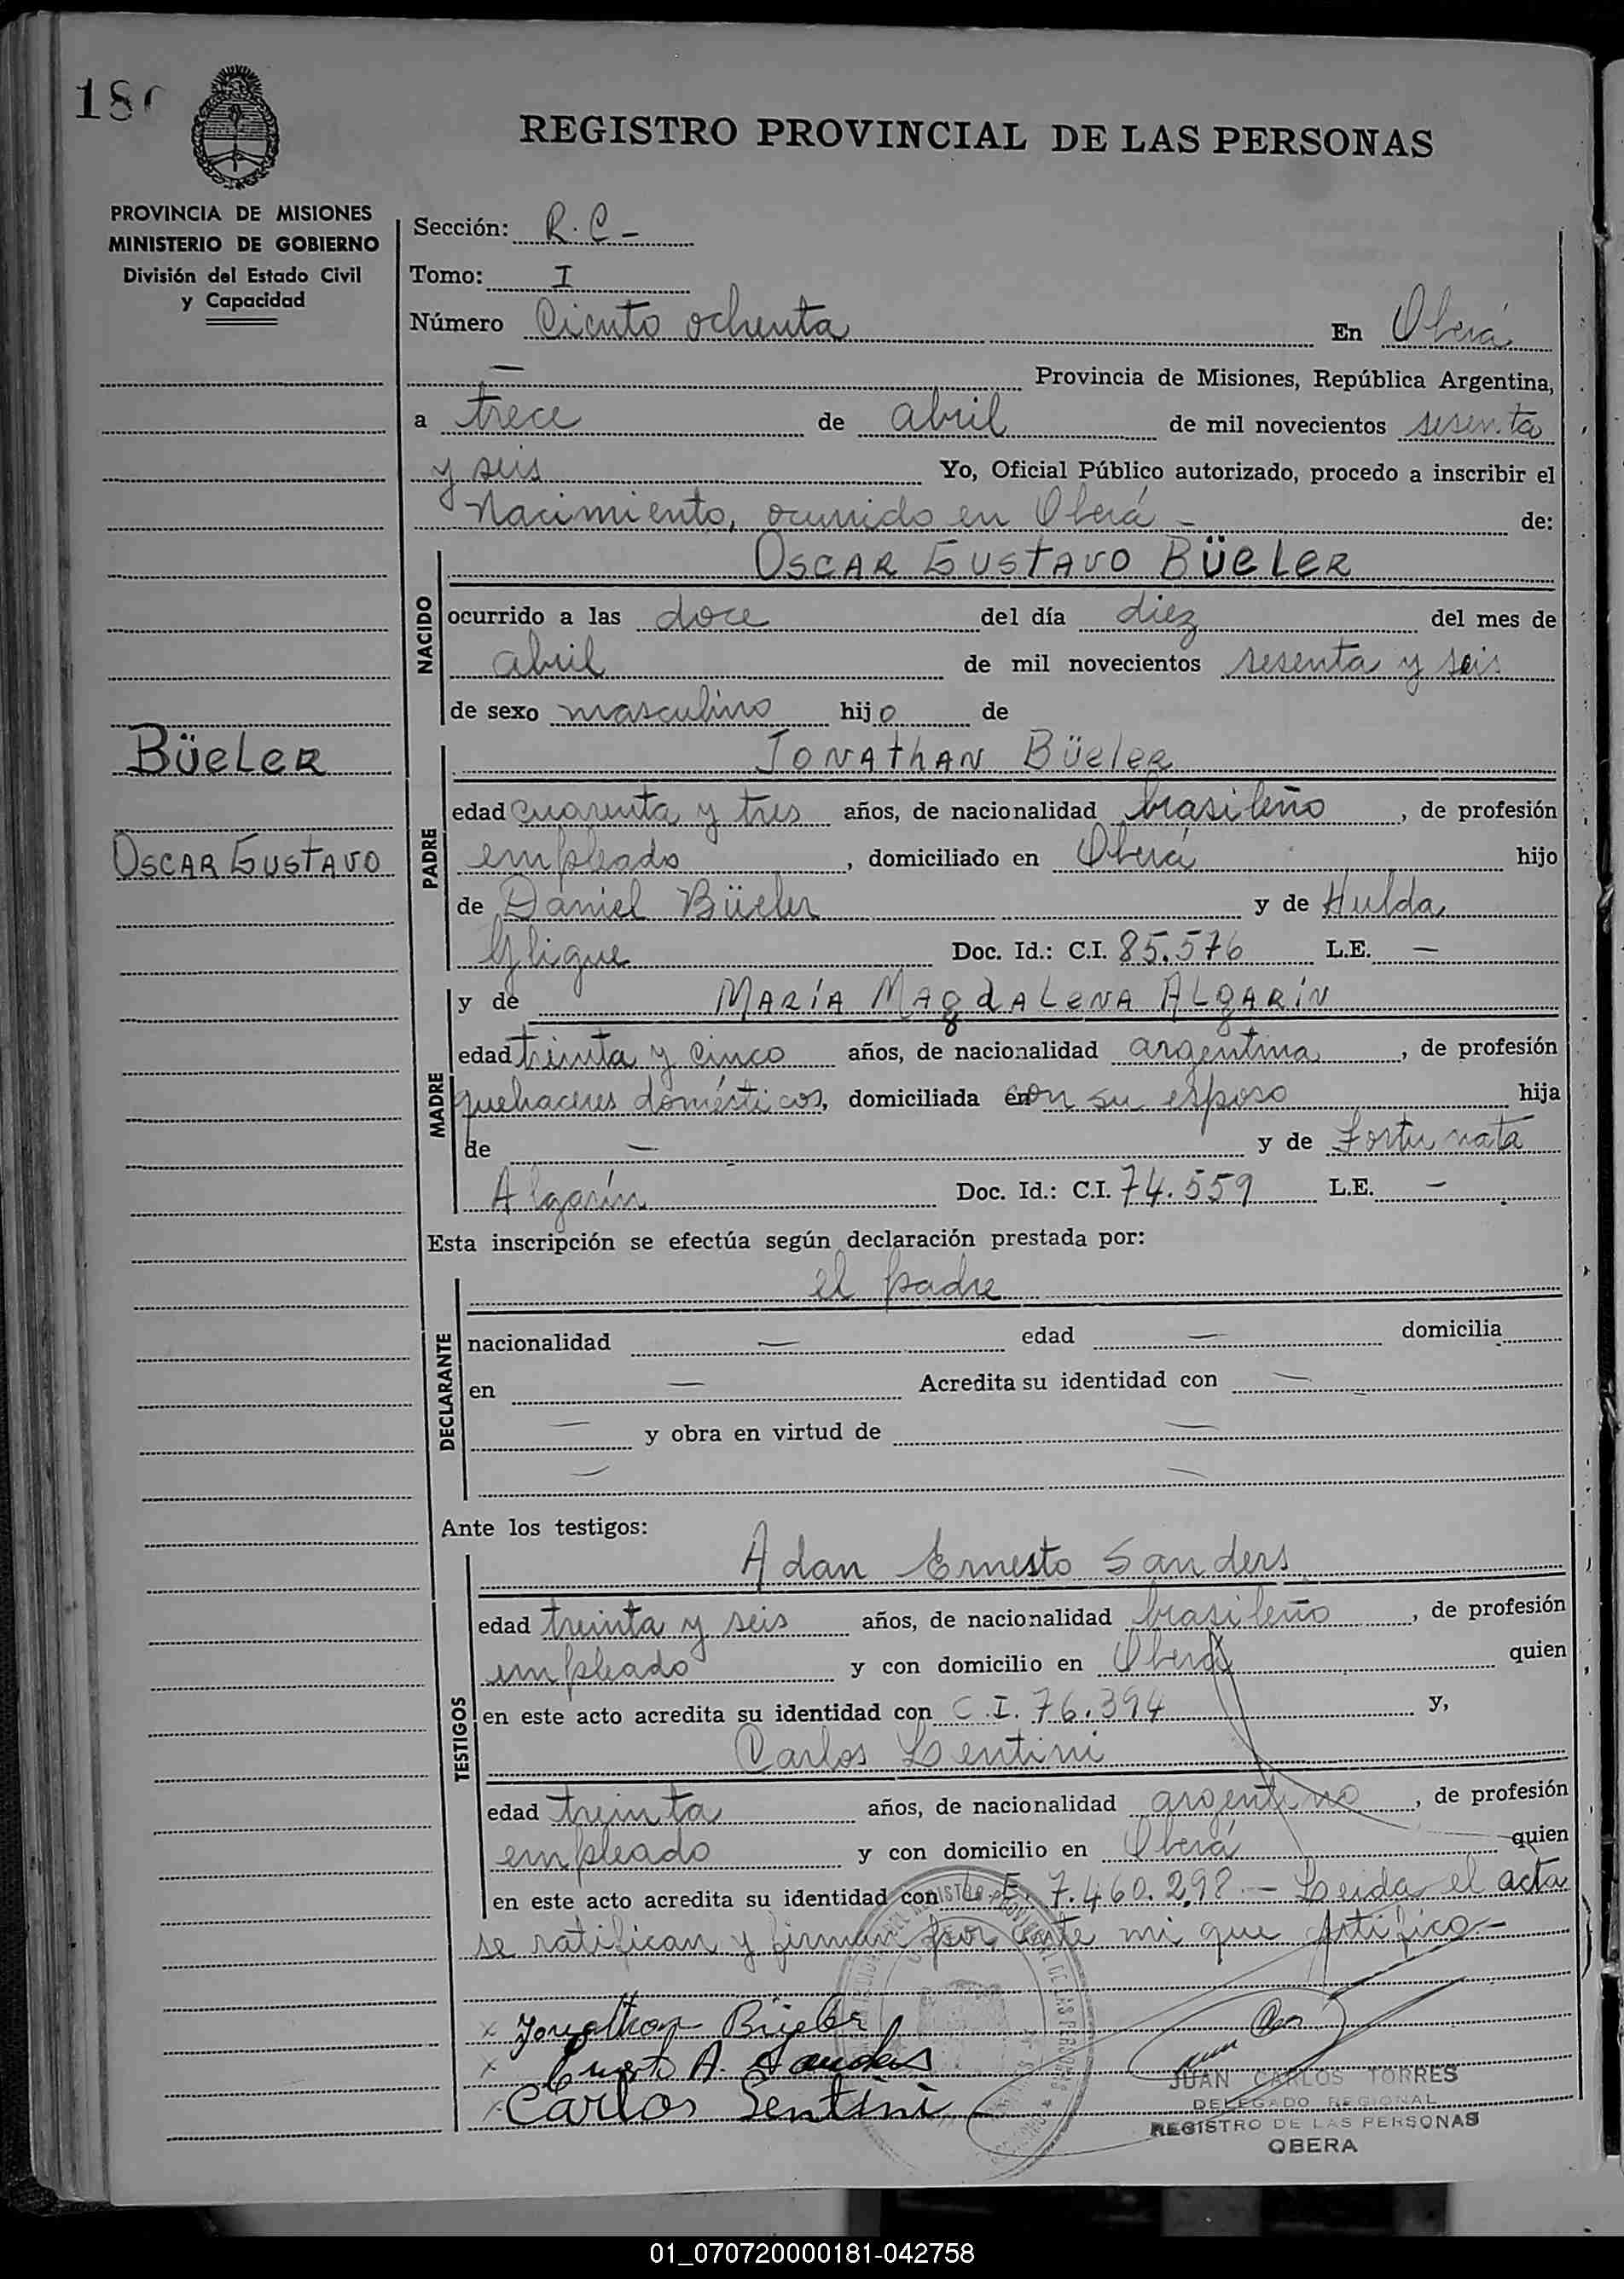 180
REGISTRO PROVINCIAL DE LAS PERSONAS
PROVINCIA DE MISIONES
MINISTERIO DE GOBIERNO
División del Estado Civil
y Capacidad
Sección: R. C -
Tomo: I
Número Ciento ochenta En Oberá
— Provincia de Misiones, República Argentina,
a trece de abril de mil novecientos sesenta
y seis Yo, Oficial Público autorizado, procedo a inscribir el
Nacimiento, ocurrido en Oberá - de:
NACIDO
OSCAR GUSTAVO BÜELER
ocurrido a las doce del día diez del mes de
abril de mil novecientos sesenta y seis
de sexo masculino hijo de
BÜELER
OSCAR GUSTAVO
PADRE
JONATHAN BÜELER
edad cuarenta y tres años, de nacionalidad brasileño, de profesión
empleado, domiciliado en Oberá hijo
de Daniel Büeler y de Hulda
Gligue Doc. Id.: C.I. 85.576 L.E. —
MADRE
y de MARÍA MAGDALENA ALGARÍN
edad treinta y cinco años, de nacionalidad argentina, de profesión
quehaceres domésticos, domiciliada con su esposo hija
de — y de Fortunata
Algarín Doc. Id.: C.I. 74.559 L.E. —
Esta inscripción se efectúa según declaración prestada por:
DECLARANTE
el padre
nacionalidad — edad — domicilia
en — Acredita su identidad con —
— y obra en virtud de —
— —
Ante los testigos:
TESTIGOS
Adan Ernesto Sanders
edad treinta y seis años, de nacionalidad brasileño, de profesión
empleado y con domicilio en Oberá quien
en este acto acredita su identidad con C.I. 76.394 y,
Carlos Lentini
edad treinta años, de nacionalidad argentino, de profesión
empleado y con domicilio en Oberá quien
en este acto acredita su identidad con L.E. 7.460.298.- Leida el acta
se ratifican y firman por ante mi que certifico.-
x Jonathan Büeler
x Ernesto A. Sanders
x Carlos Lentini
JUAN CARLOS TORRES
DELEGADO REGIONAL
REGISTRO DE LAS PERSONAS
OBERA
01_070720000181-042758